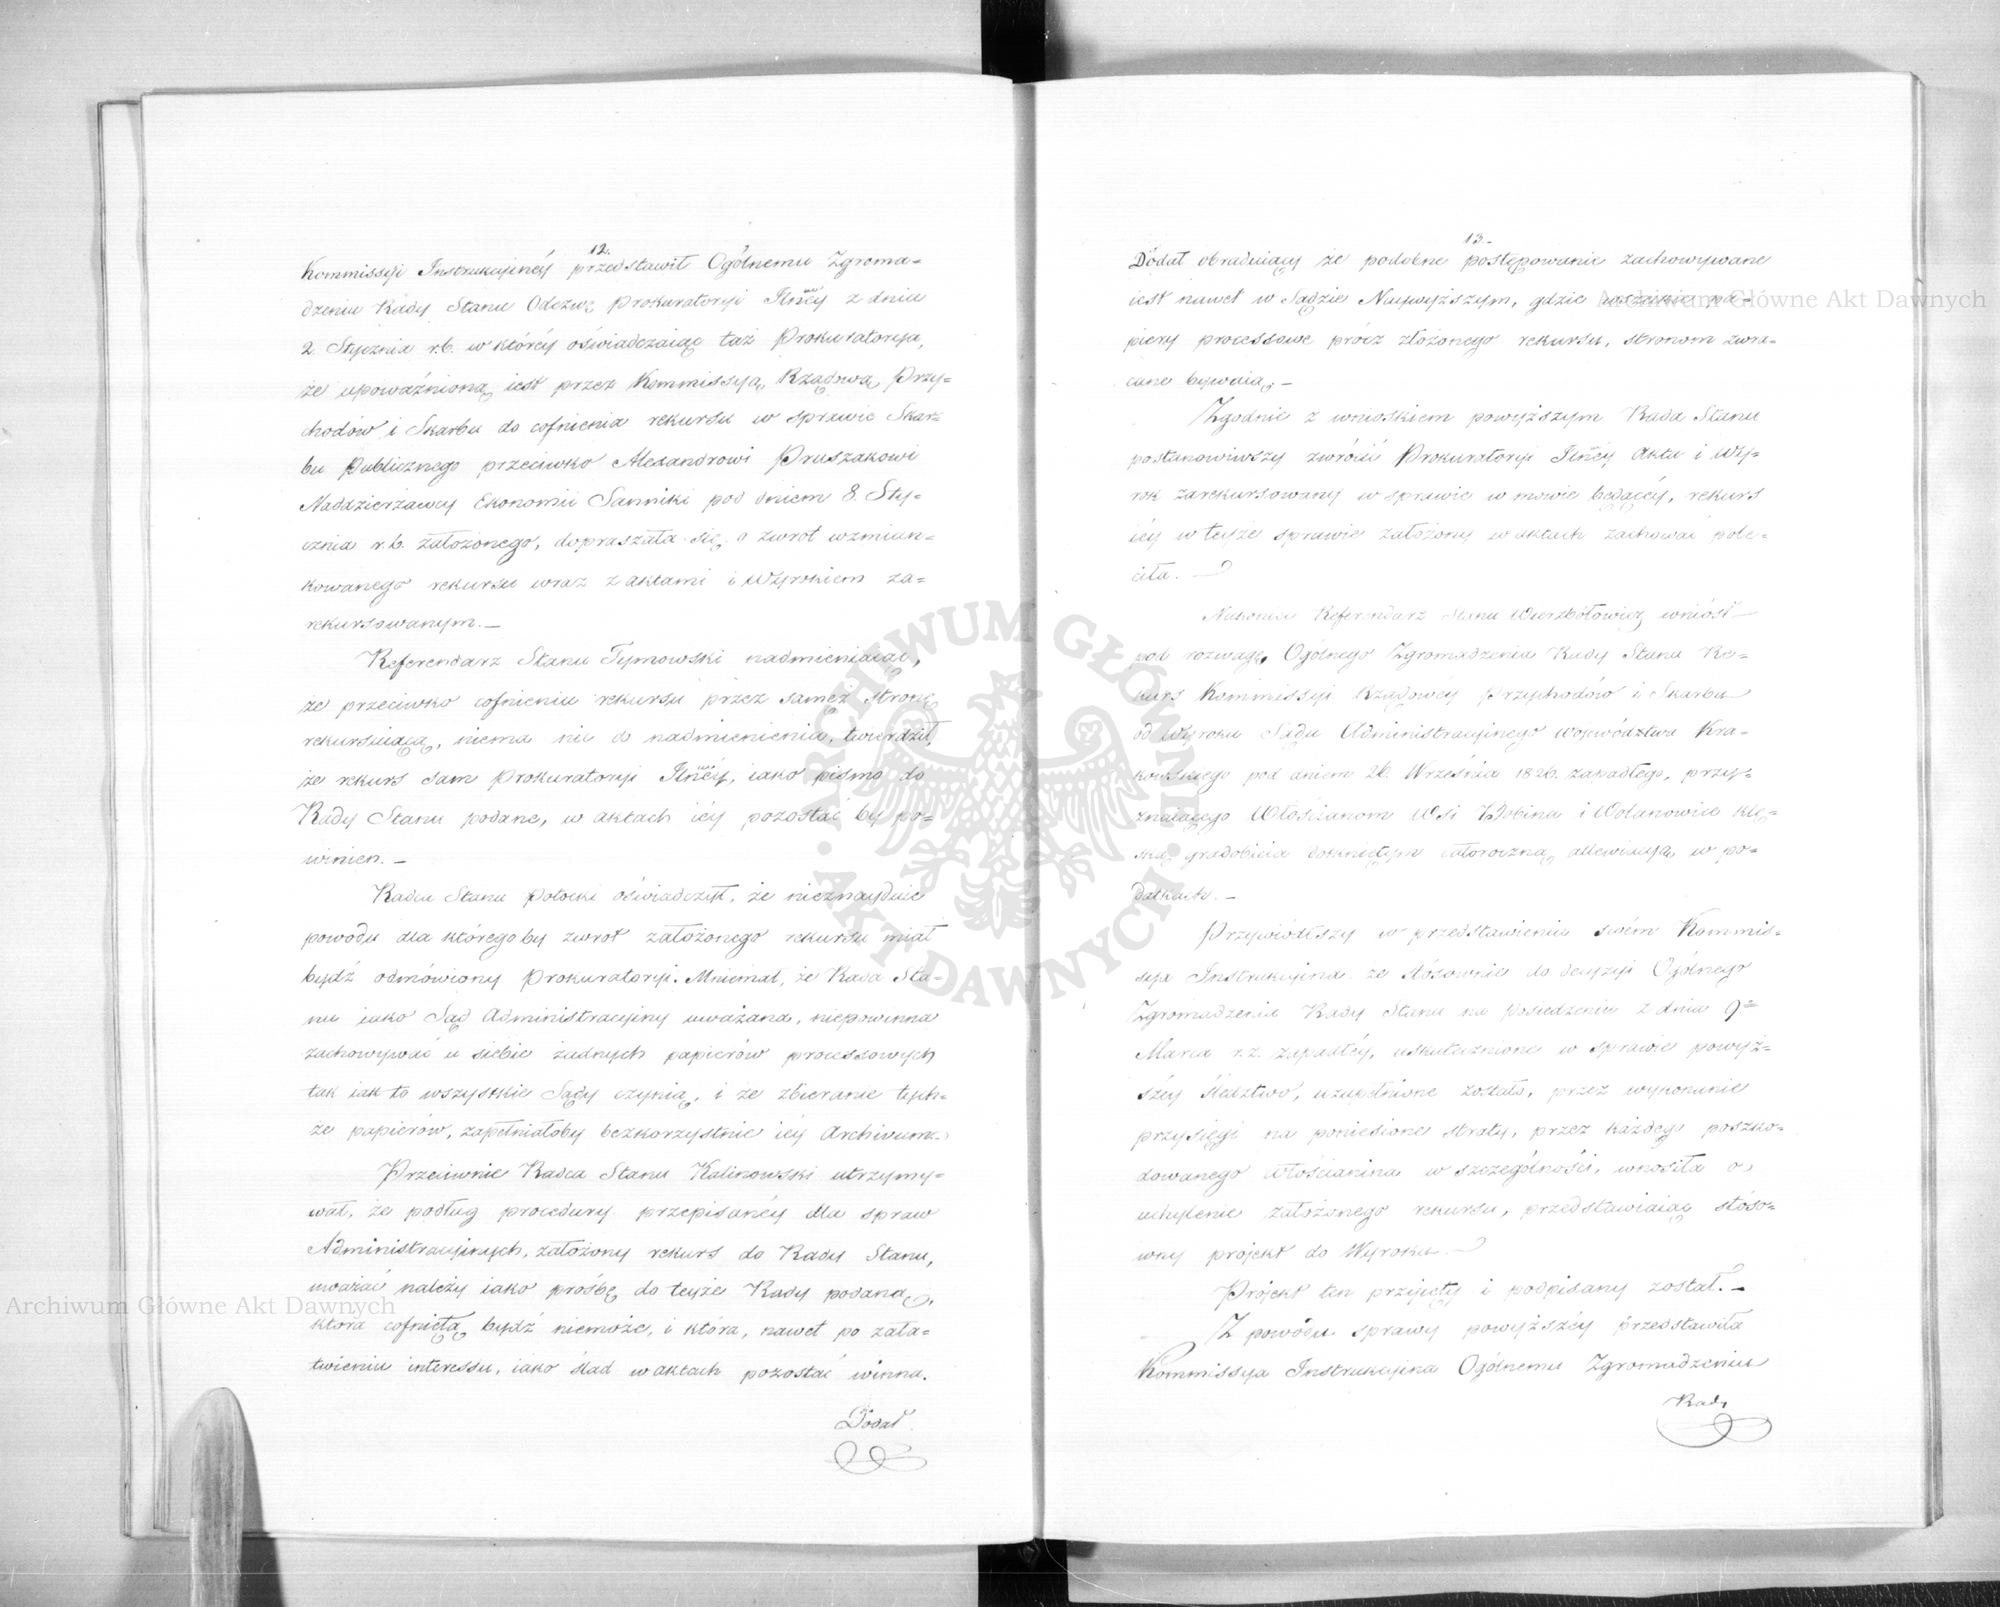 12.
Kommissyi Instrukcyinéy przedstawił Ogólnemu Zgroma=
dzeniu Rady Stanu Odezwę Prokuratoryi Jlnéy z dnia
2. Stycznia r.b. w któréy oświadczaiąc taż Prokuratorya,
że upoważnioną iest przez Kommissyą Rządową Przy=
chodów i Skarbu do cofnienia rekursu w sprawie Skar=
bu Publicznego przeciwko Alexandrowi Pruszakowi
Naddzierżawcy Ekonomii Sanniki pod dniem 8. Sty=
cznia r.b. założonego, dopraszała się o zwrot wzmian=
kowanego rekursu wraz z aktami i Wyrokiem za=
rekursowanym. —
Referendarz Stanu Tymowski nadmieniaiąc,
że przeciwko cofnieniu rekursu przez samęż Stronę
rekursuiącą, niema nic do nadmienienia, twierdził,
że rekurs sam Prokuratoryi Jlnéy, iako pismo do
Rady Stanu podane, w aktach iéy pozostać by po=
winien. —
Radca Stanu Potocki oświadczył, że nieznayduie
powodu dla którego by zwrot założonego rekursu miał
bydź odmówiony Prokuratoryi. Mniemał, że Rada Sta=
nu iako Sąd Administracyiny uważana, niepowinna
zachowywać u siebie żadnych papierów processowych
tak iak to wszystkie Sądy czynią, i że zbieranie tych=
że papierów, zapełniałoby bezkorzystnie iéy Archivum.
Przeciwnie Radca Stanu Kalinowski utrzymy=
wał, że podług procedury przepisanéy dla spraw
Administracyinych, założony rekurs do Rady Stanu,
uważać należy iako prośbę do teyże Rady podaną,
która cofniętą bydź niemoże, i która, nawet po zała=
twieniu interessu, iako ślad w aktach pozostać winna.
Dodał
13.
Dodał obraduiący że podobne postępowanie zachowywane
iest nawet w Sądzie Naywyższym, gdzie wszelkie pa=
piery processowe prócz złożonego rekursu, stronom zwra=
cane bywaią. —
Zgodnie z wnioskiem powyższym Rada Stanu
postanowiwszy zwrócić Prokuratoryi Jlnéy Akta i Wy=
rok zarekursowany w sprawie w mowie będącéy, rekurs
iéy w teyże sprawie założony w aktach zachować pole=
ciła. —
Nakoniec Referendarz Stanu Wierzbołowicz wniósł
pod rozwagę Ogólnego Zgromadzenia Rady Stanu Re=
kurs Kommissyi Rządowéy Przychodów i Skarbu
od Wyroku Sądu Administracyinego Województwa Kra=
kowskiego pod dniem 26. Września 1826. zapadłego, przy=
znaiącego Włościanom Wsi Wdobina i Wolanowice klę=
ską gradobicia dotkniętym całoroczną allewiacyą w po=
datkach. —
Przywiódłszy w przedstawieniu swém Kommis=
sya Instrukcyina że stósownie do decyzyi Ogólnego
Zgromadzenia Rady Stanu na Posiedzeniu z dnia 9º
Marca r.z. zapadłéy, uskutecznione w sprawie powyż=
széy śledztwo, uzupełnione zostało, przez wykonanie
przysięgi na poniesione straty, przez każdego poszko=
dowanego Włościanina w szczególności, wnosiła o
uchylenie założonego rekursu, przedstawiaiąc stóso=
wny projekt do Wyroku. —
Projekt ten przyięty i podpisany został. —
Z powodu sprawy powyższéy przedstawiła
Kommissya Instrukcyina Ogólnemu Zgromadzeniu
Rady
Archiwum Główne Akt Dawnych
Archiwum Główne Akt Dawnych
ARCHIWUM GŁÓWNE
AKT DAWNYCH